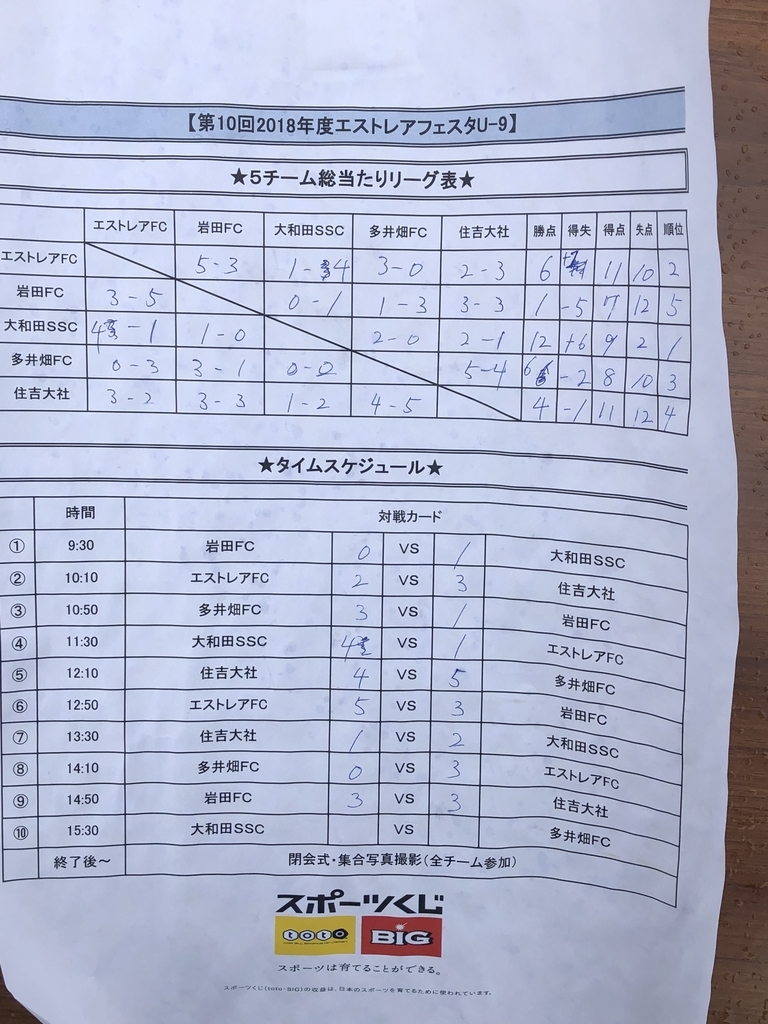 【第10回2018年度エストレアフェスタU-9】
★5チーム総当たりリーグ表★
エストレアFC 岩田FC 大和田SSC 多井畑FC 住吉大社 勝点 得失 得点 失点 順位
エストレアFC 5-3 1-4 3-0 2-3 6 11 10 2
岩田FC 3-5 0-1 1-3 3-3 1 -5 7 12 5
大和田SSC 4-1 1-0 2-0 2-1 12 +6 9 2 1
多井畑FC 0-3 3-1 0-2 5-4 6 -2 8 10 3
住吉大社 3-2 3-3 1-2 4-5 4 -1 11 12 4
★タイムスケジュール★
時間 対戦カード
① 9:30 岩田FC 0 VS 1 大和田SSC
② 10:10 エストレアFC 2 VS 3 住吉大社
③ 10:50 多井畑FC 3 VS 1 岩田FC
④ 11:30 大和田SSC 4 VS 1 エストレアFC
⑤ 12:10 住吉大社 4 VS 5 多井畑FC
⑥ 12:50 エストレアFC 5 VS 3 岩田FC
⑦ 13:30 住吉大社 1 VS 2 大和田SSC
⑧ 14:10 多井畑FC 0 VS 3 エストレアFC
⑨ 14:50 岩田FC 3 VS 3 住吉大社
⑩ 15:30 大和田SSC VS 多井畑FC
終了後~ 閉会式・集合写真撮影(全チーム参加)
スポーツくじ
toto BIG
スポーツは育てることができる。
スポーツくじ(toto・BIG)の収益は、日本のスポーツを育てるために使われています。